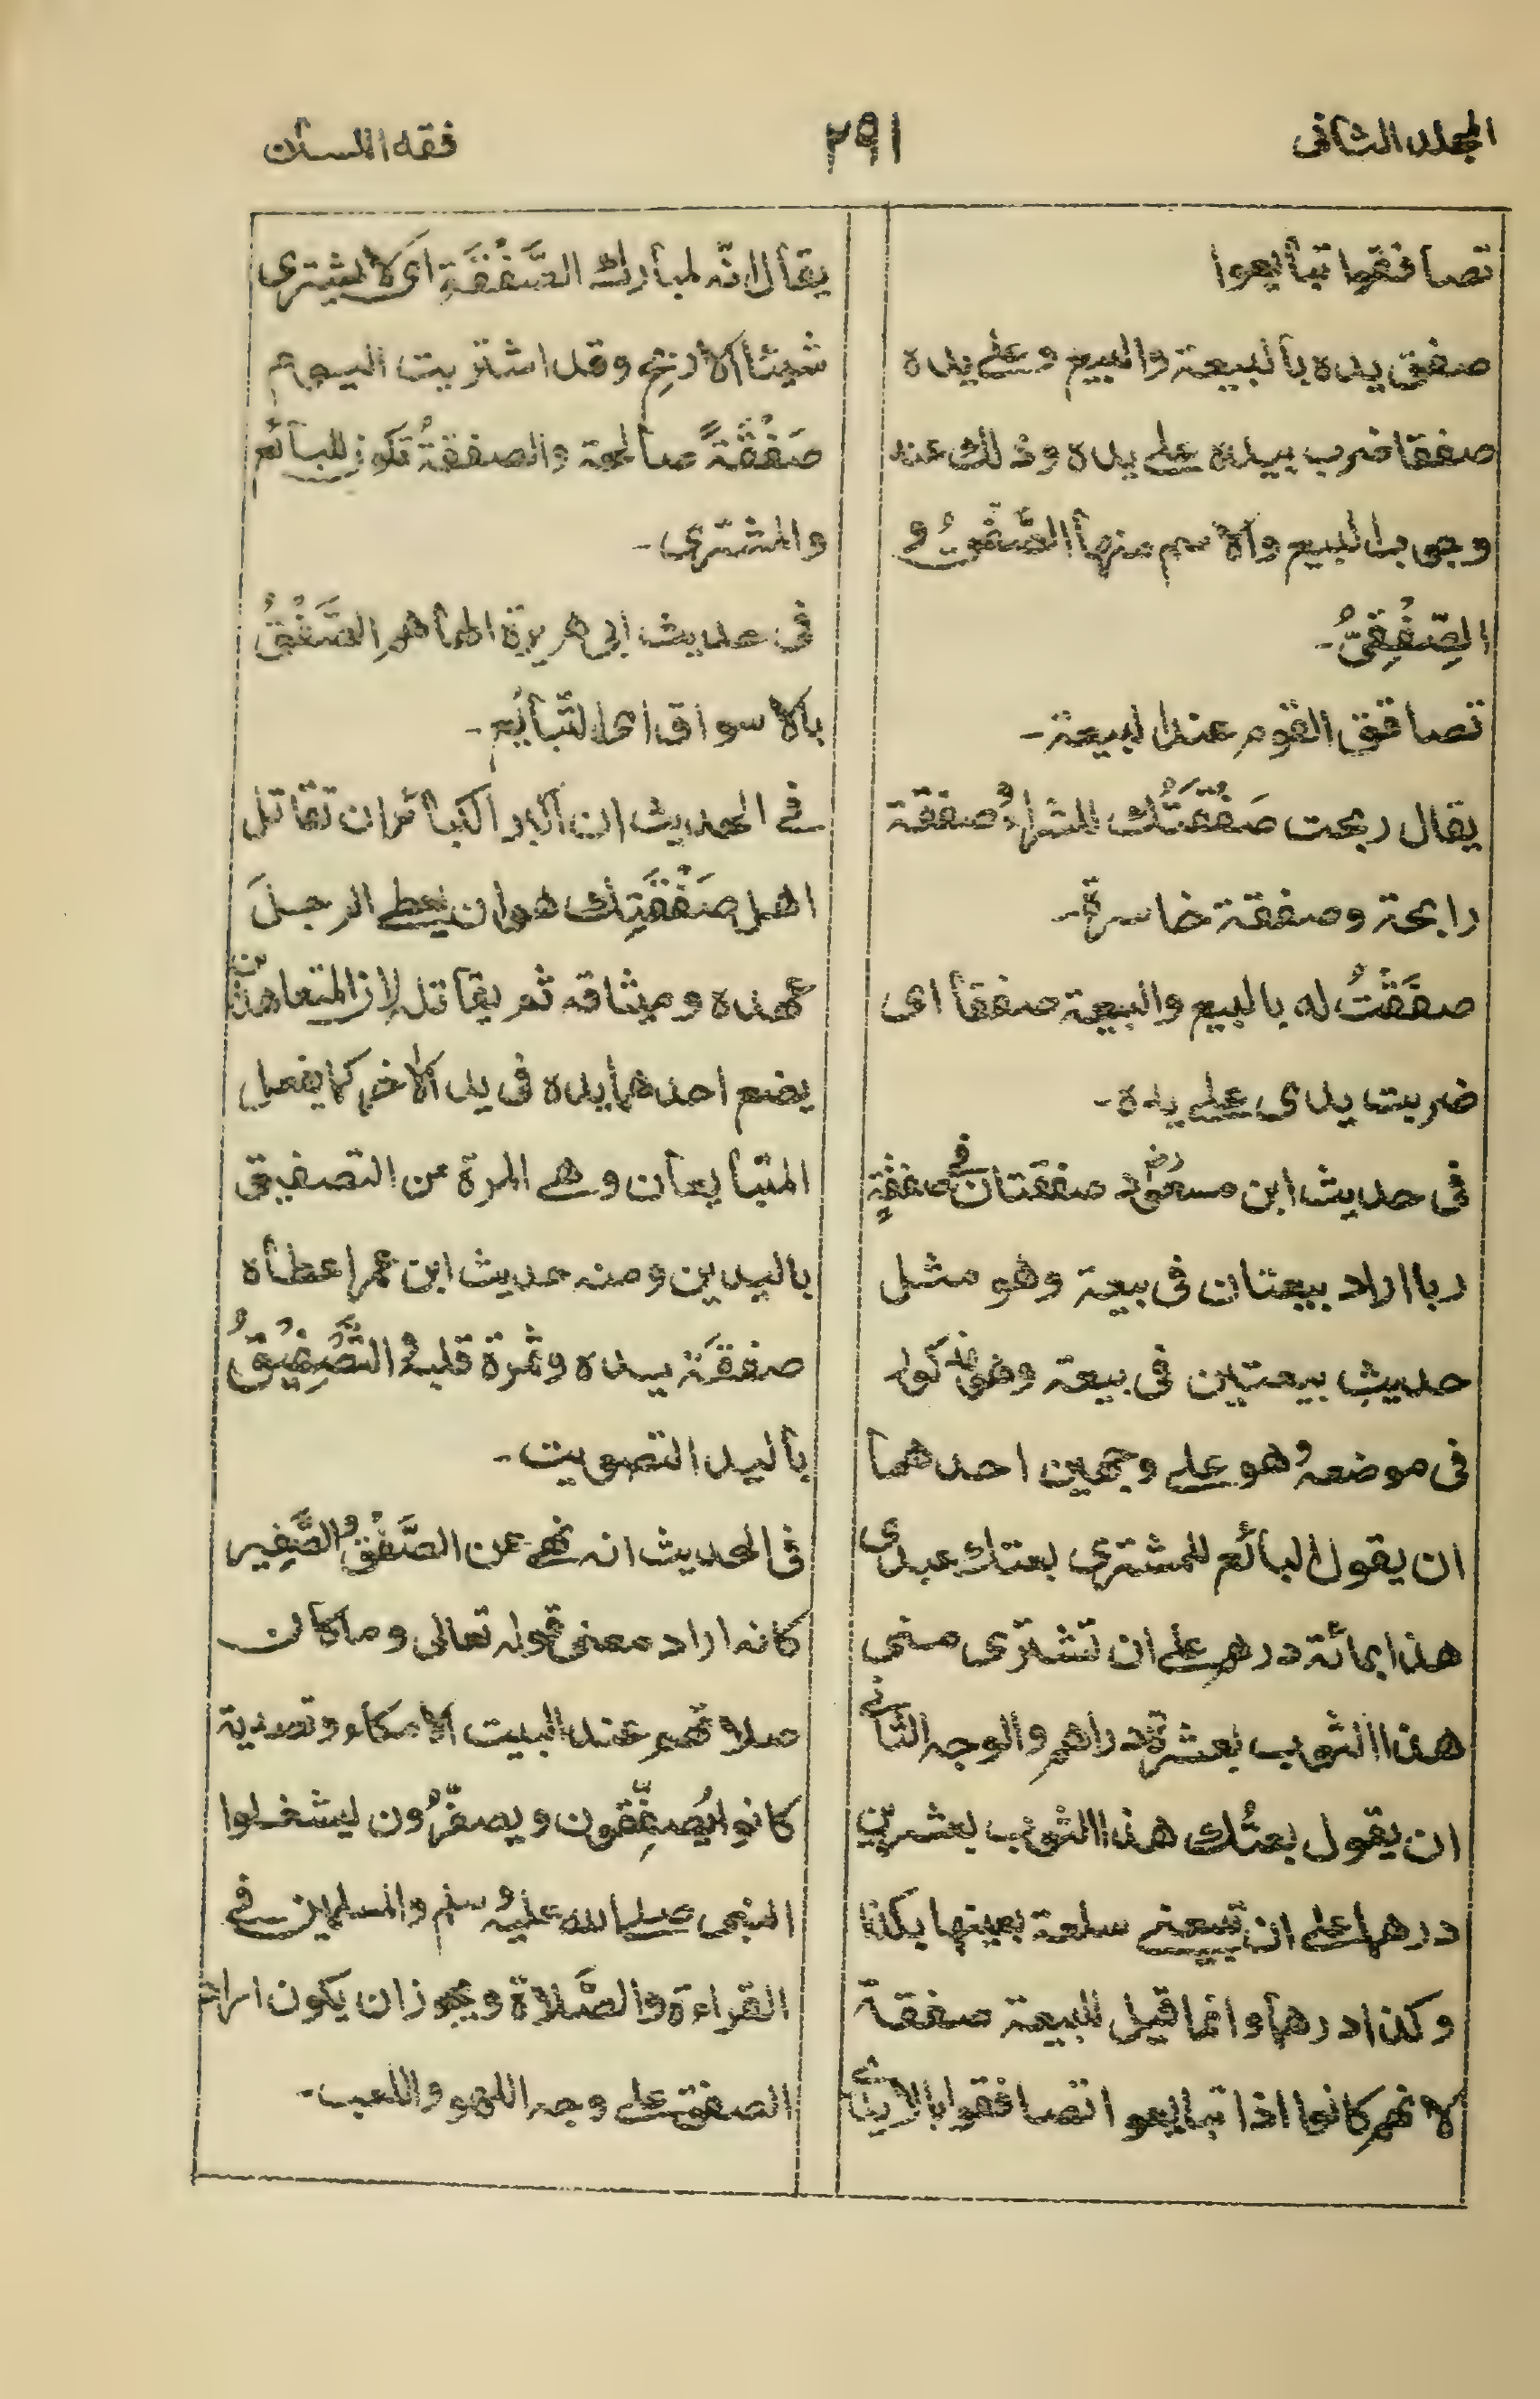 المجلد الثانى
٢٩١
فقه اللسان
تصافقوا تبايعوا
صفق يده بالبيعة والبيع وعلى يده
صفقا ضرب بيده على يده وذلك عند
وجوب البيع والاسم منها الصَّفْقُ و
الصِّفِقِىُّ-
تصافق القوم عند البيعة-
يقال ربحت صَفْقَتُك للشراء وصفقة
رابحة وصفقة خاسرة-
صفَقْتُ له بالبيع والبيعة صفقا اى
ضربت يدى على يده-
فى حديث ابن مسعودؓ صفقتان فى صفقةٍ
ربا اراد بيعتان فى بيعة وهو مثل
حديث بيعتين فى بيعة وهو مذكور
فى موضعه وهو على وجهين احدهما
ان يقول البائع للمشترى بعتك عبدى
هذا بمائة درهم على ان تشترى منى
هذا الثوب بعشرة دراهم والوجه الثانى
ان يقول بعتُك هذا الثوب بعشرين
درهما على ان تبيعنى سلعة بعينها بكذا
وكذا درهما وانما قيل للبيعة صفقة
لانهم كانوا اذا تبايعوا تصافقوا بالايدى
يقال انّه لمبارك الصَّفْقَةِ اى لا يشترى
شيئا الا ربح وقد اشتريت اليوم
صَفْقَةً صالحة والصفقةُ تكون للبائع
والمشترى-
فى حديث ابى هريرة الهاهم الصَّفْقُ
بالاسواق اى التّبايُع-
فى الحديث ان اكبر الكبائر ان تقاتل
اهل صَفْقَتِك هو ان يعطى الرجلَ
عهده وميثاقه ثم يقاتله لان المتعاهدين
يضع احدهما يده فى يد الآخر كما يفعل
المتبايعان وهى المرة من التصفيق
باليدين ومنه حديث ابن عمر اعطاه
صفقَة يده وثمرة قلبه والتَّصْفِيْقُ
باليد التصويت-
فى الحديث انه نهى عن الصَّفْقِ والصَّفِير
كانه اراد معنى قوله تعالى وماكان
صلاتهم عند البيت الا مكاء وتصدية
كانوا يُصفِّقون ويصفّرُون ليشغلوا
النبى صلى الله عليه وسلم والمسلمين فى
القراءة والصَّلاة ويجوز ان يكون اراد
الصفق على وجه اللهو واللعب-